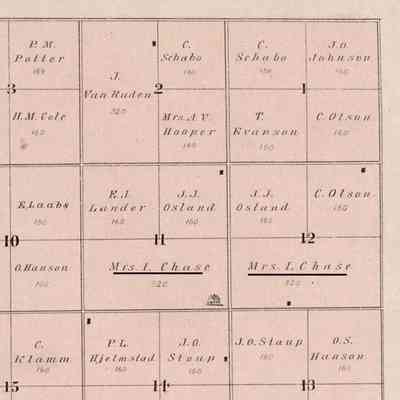 P. M. Potter 160
J. Van Ruden 320
C. Schabo 160
C. Schabo 160
J.O. Johnson 160
3
2
1
H.M. Cole 160
Mrs. A.V. Hooper 160
T. Evanson 160
C. Olson 160
E. Laabs 160
E.J. Lander 160
J.J. Osland 160
J.J. Osland 160
C. Olson 160
10
11
12
O. Hanson 160
Mrs. I. Chase 320
Mrs. I. Chase 320
C. Klamm 160
P.L. Hjelmstad 160
J.O. Staup 160
J.O. Staup 160
O.S. Hanson 160
15
14
13